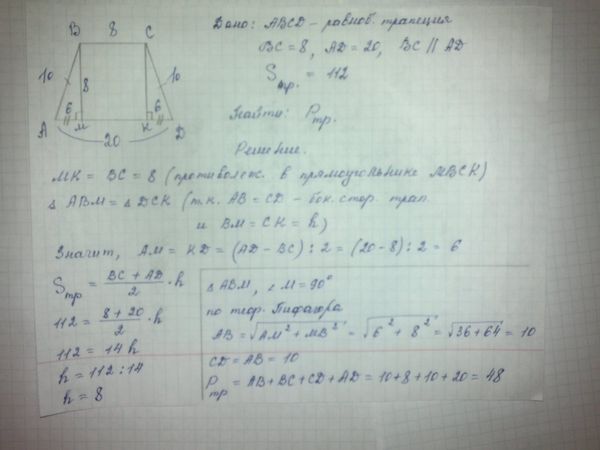 B 8 C
10 8 10
6 6
A M K D
20
Дано: ABCD - равноб. трапеция
BC = 8, AD = 20, BC || AD
Sтр. = 112
Найти: Pтр.
Решение.
MK = BC = 8 (противолеж. в прямоугольнике MBCK)
△ ABM = △ DCK (т.к. AB = CD - бок. стор. трап.
и BM = CK = h)
Значит, AM = KD = (AD - BC) : 2 = (20 - 8) : 2 = 6
Sтр = (BC + AD)/2 · h
112 = (8 + 20)/2 · h
112 = 14 h
h = 112 : 14
h = 8
△ ABM, ∠ M = 90°
по теор. Пифагора
AB = √(AM² + MB²) = √(6² + 8²) = √(36 + 64) = 10
CD = AB = 10
Pтр = AB + BC + CD + AD = 10 + 8 + 10 + 20 = 48